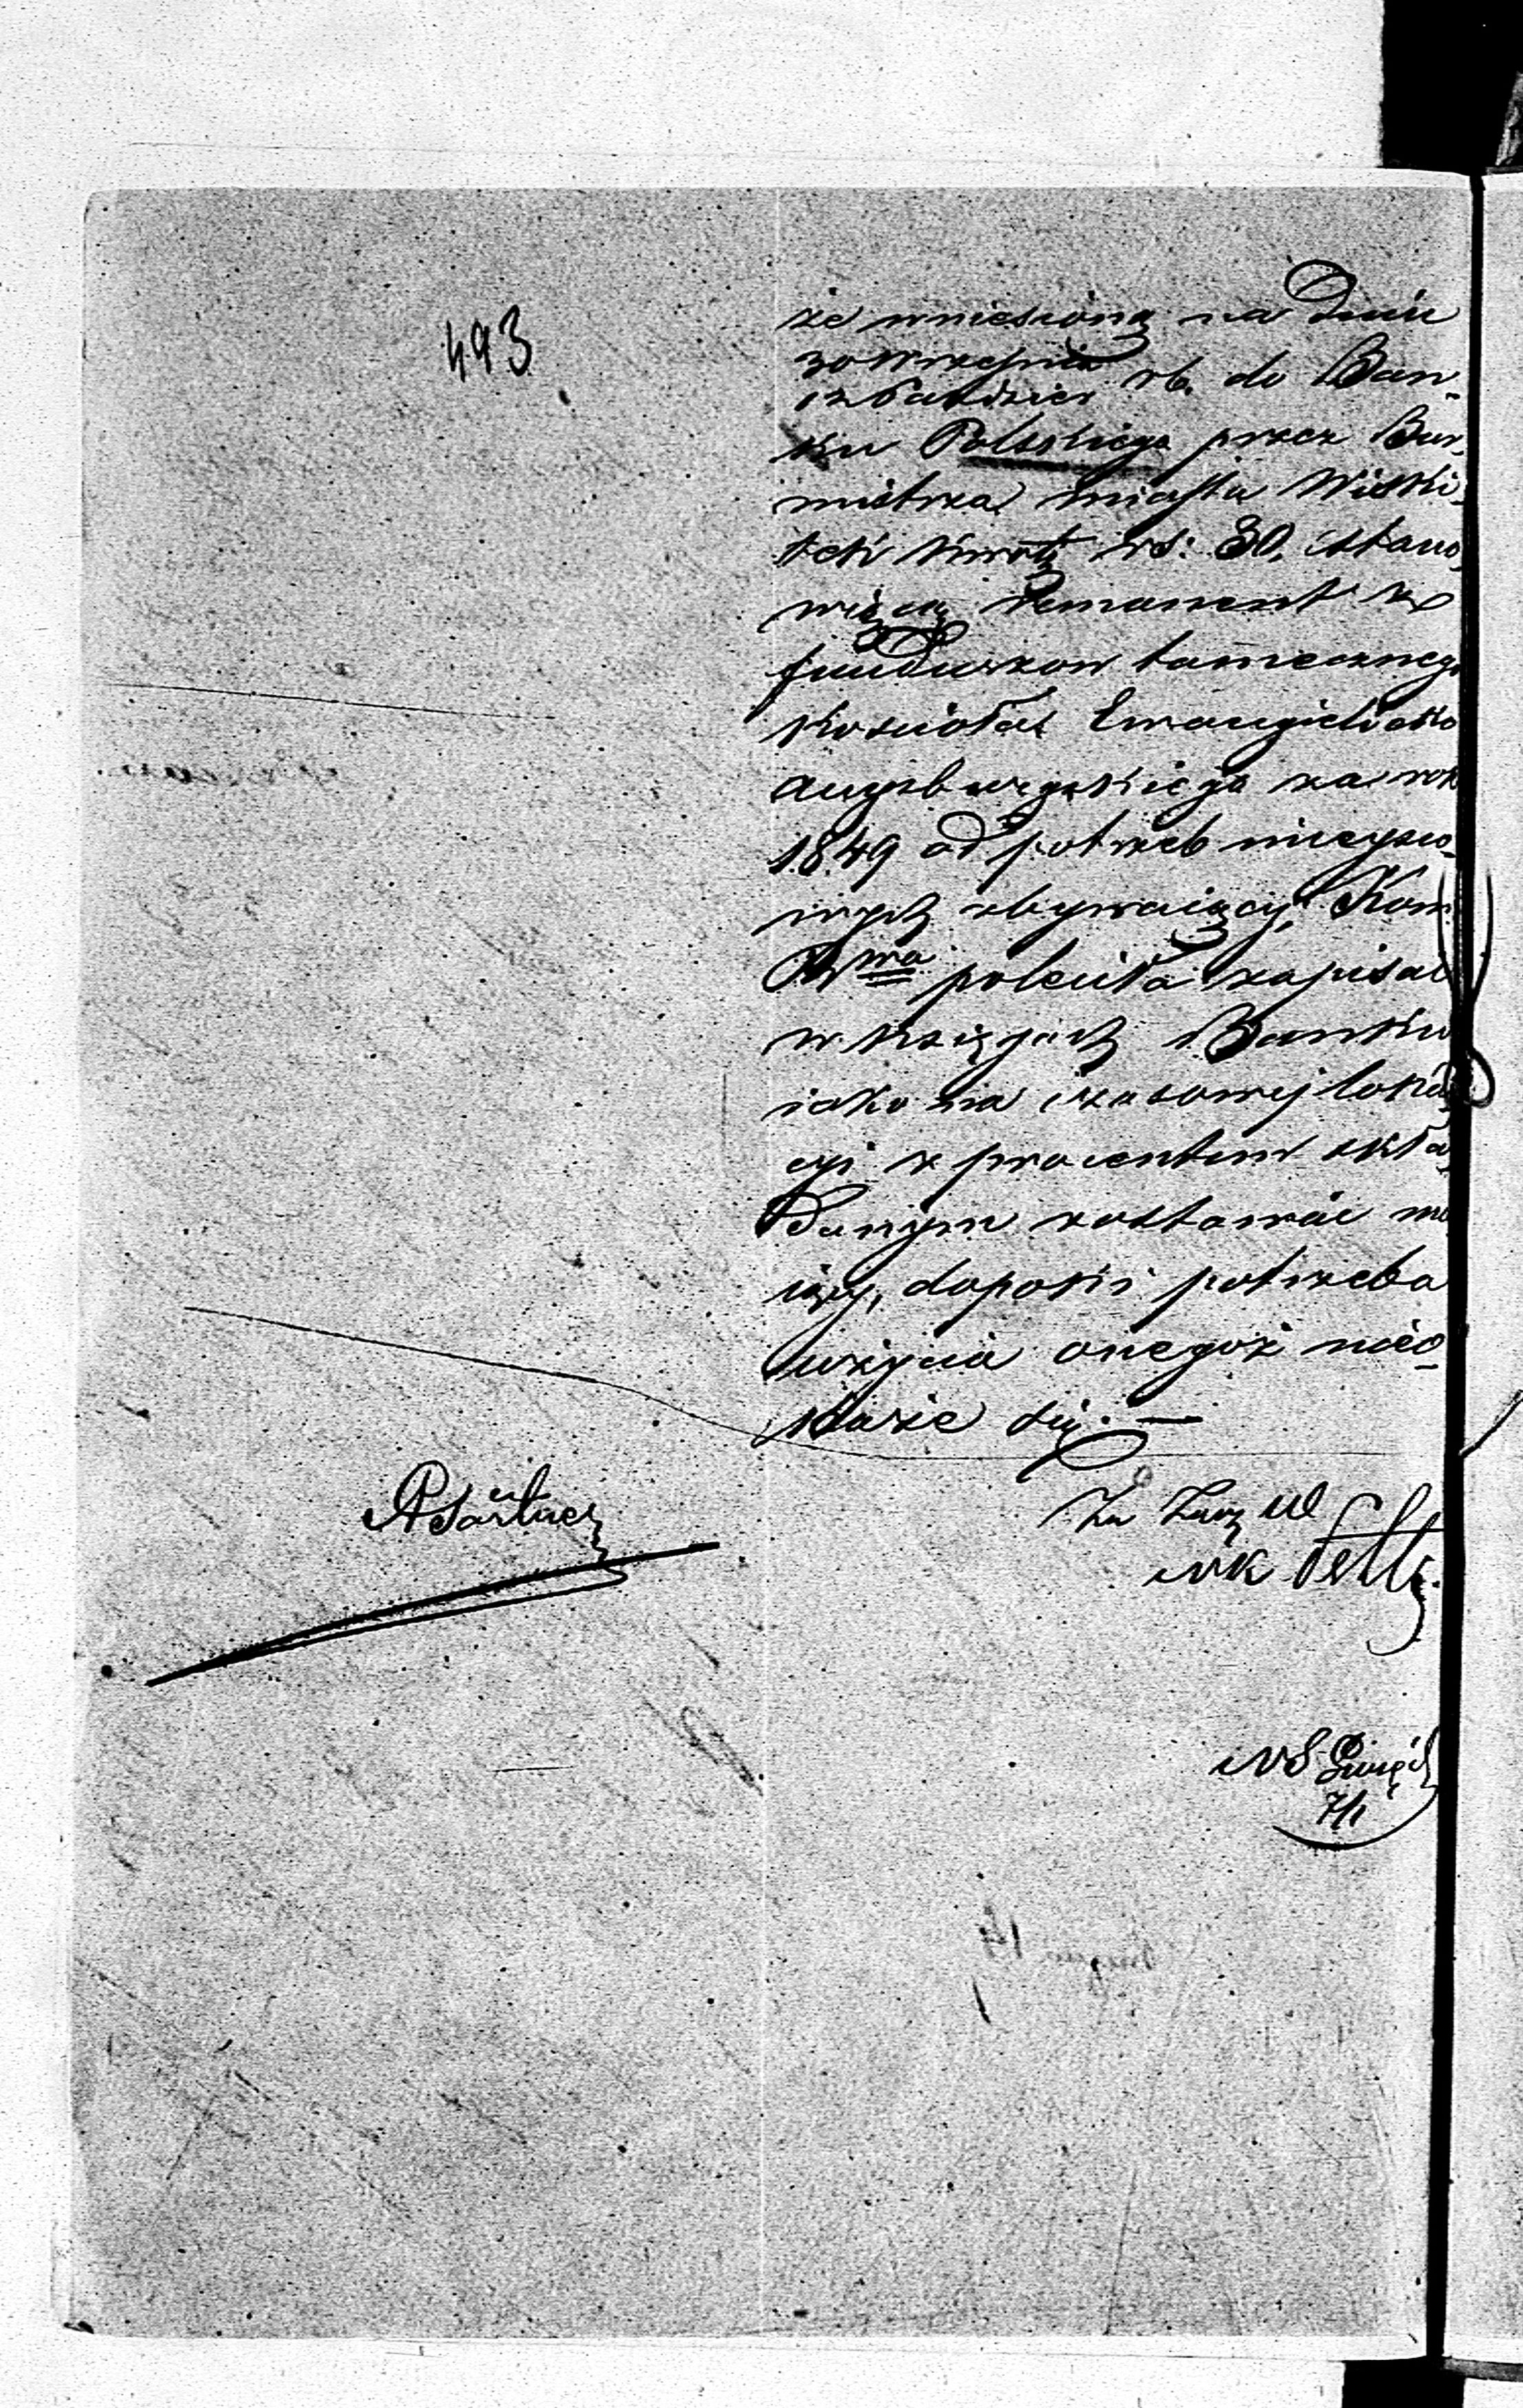 493
że wniesioną na Dniu
30 Września
Października rb. do Ban-
ku Polskiego przez Bur-
mistrza miasta Wiski-
tek kwotę rs: 30, stano-
wiącą remanent z
funduszow tamecznego
Koscioła Ewangielicko
augsburgskiego za rok
1849 od potrzeb miejsco-
wych zbywaiącą, Kom.
Rwa poleciła zapisać
w księgach Banku
iako na czasowej loka-
cyi z procentem skła-
danym zostawać ma
iącą, dopoki potrzeba
użycia onegoż nieo-
każe się. —
Za Zarz Wł
NK
NS
7/1